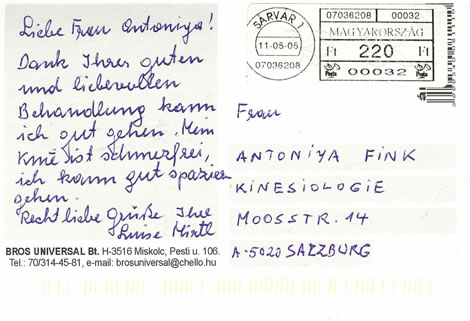 Liebe Frau Antoniya!
Dank Ihrer guten
und liebevollen
Behandlung kann
ich gut gehen. Mein
Knie ist schmerzfrei,
ich kann gut spazieren
gehen.
Recht liebe Grüße Ihre
Luise
BROS UNIVERSAL Bt. H-3516 Miskolc, Pesti u. 106.
Tel.: 70/314-45-81, e-mail: brosuniversal@chello.hu
SÁRVÁR 1
11-05-06
07036208
07036208 00032
MAGYARORSZÁG
Ft 220 Ft
Posta 00032 Posta
Frau
ANTONIYA FINK
KINESIOLOGIE
MOOSSTR. 14
A-5020 SALZBURG